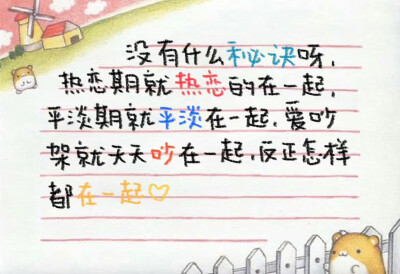 没有什么秘诀呀，
热恋期就热恋的在一起，
平淡期就平淡在一起，爱吵
架就天天吵在一起，反正怎样
都在一起♡